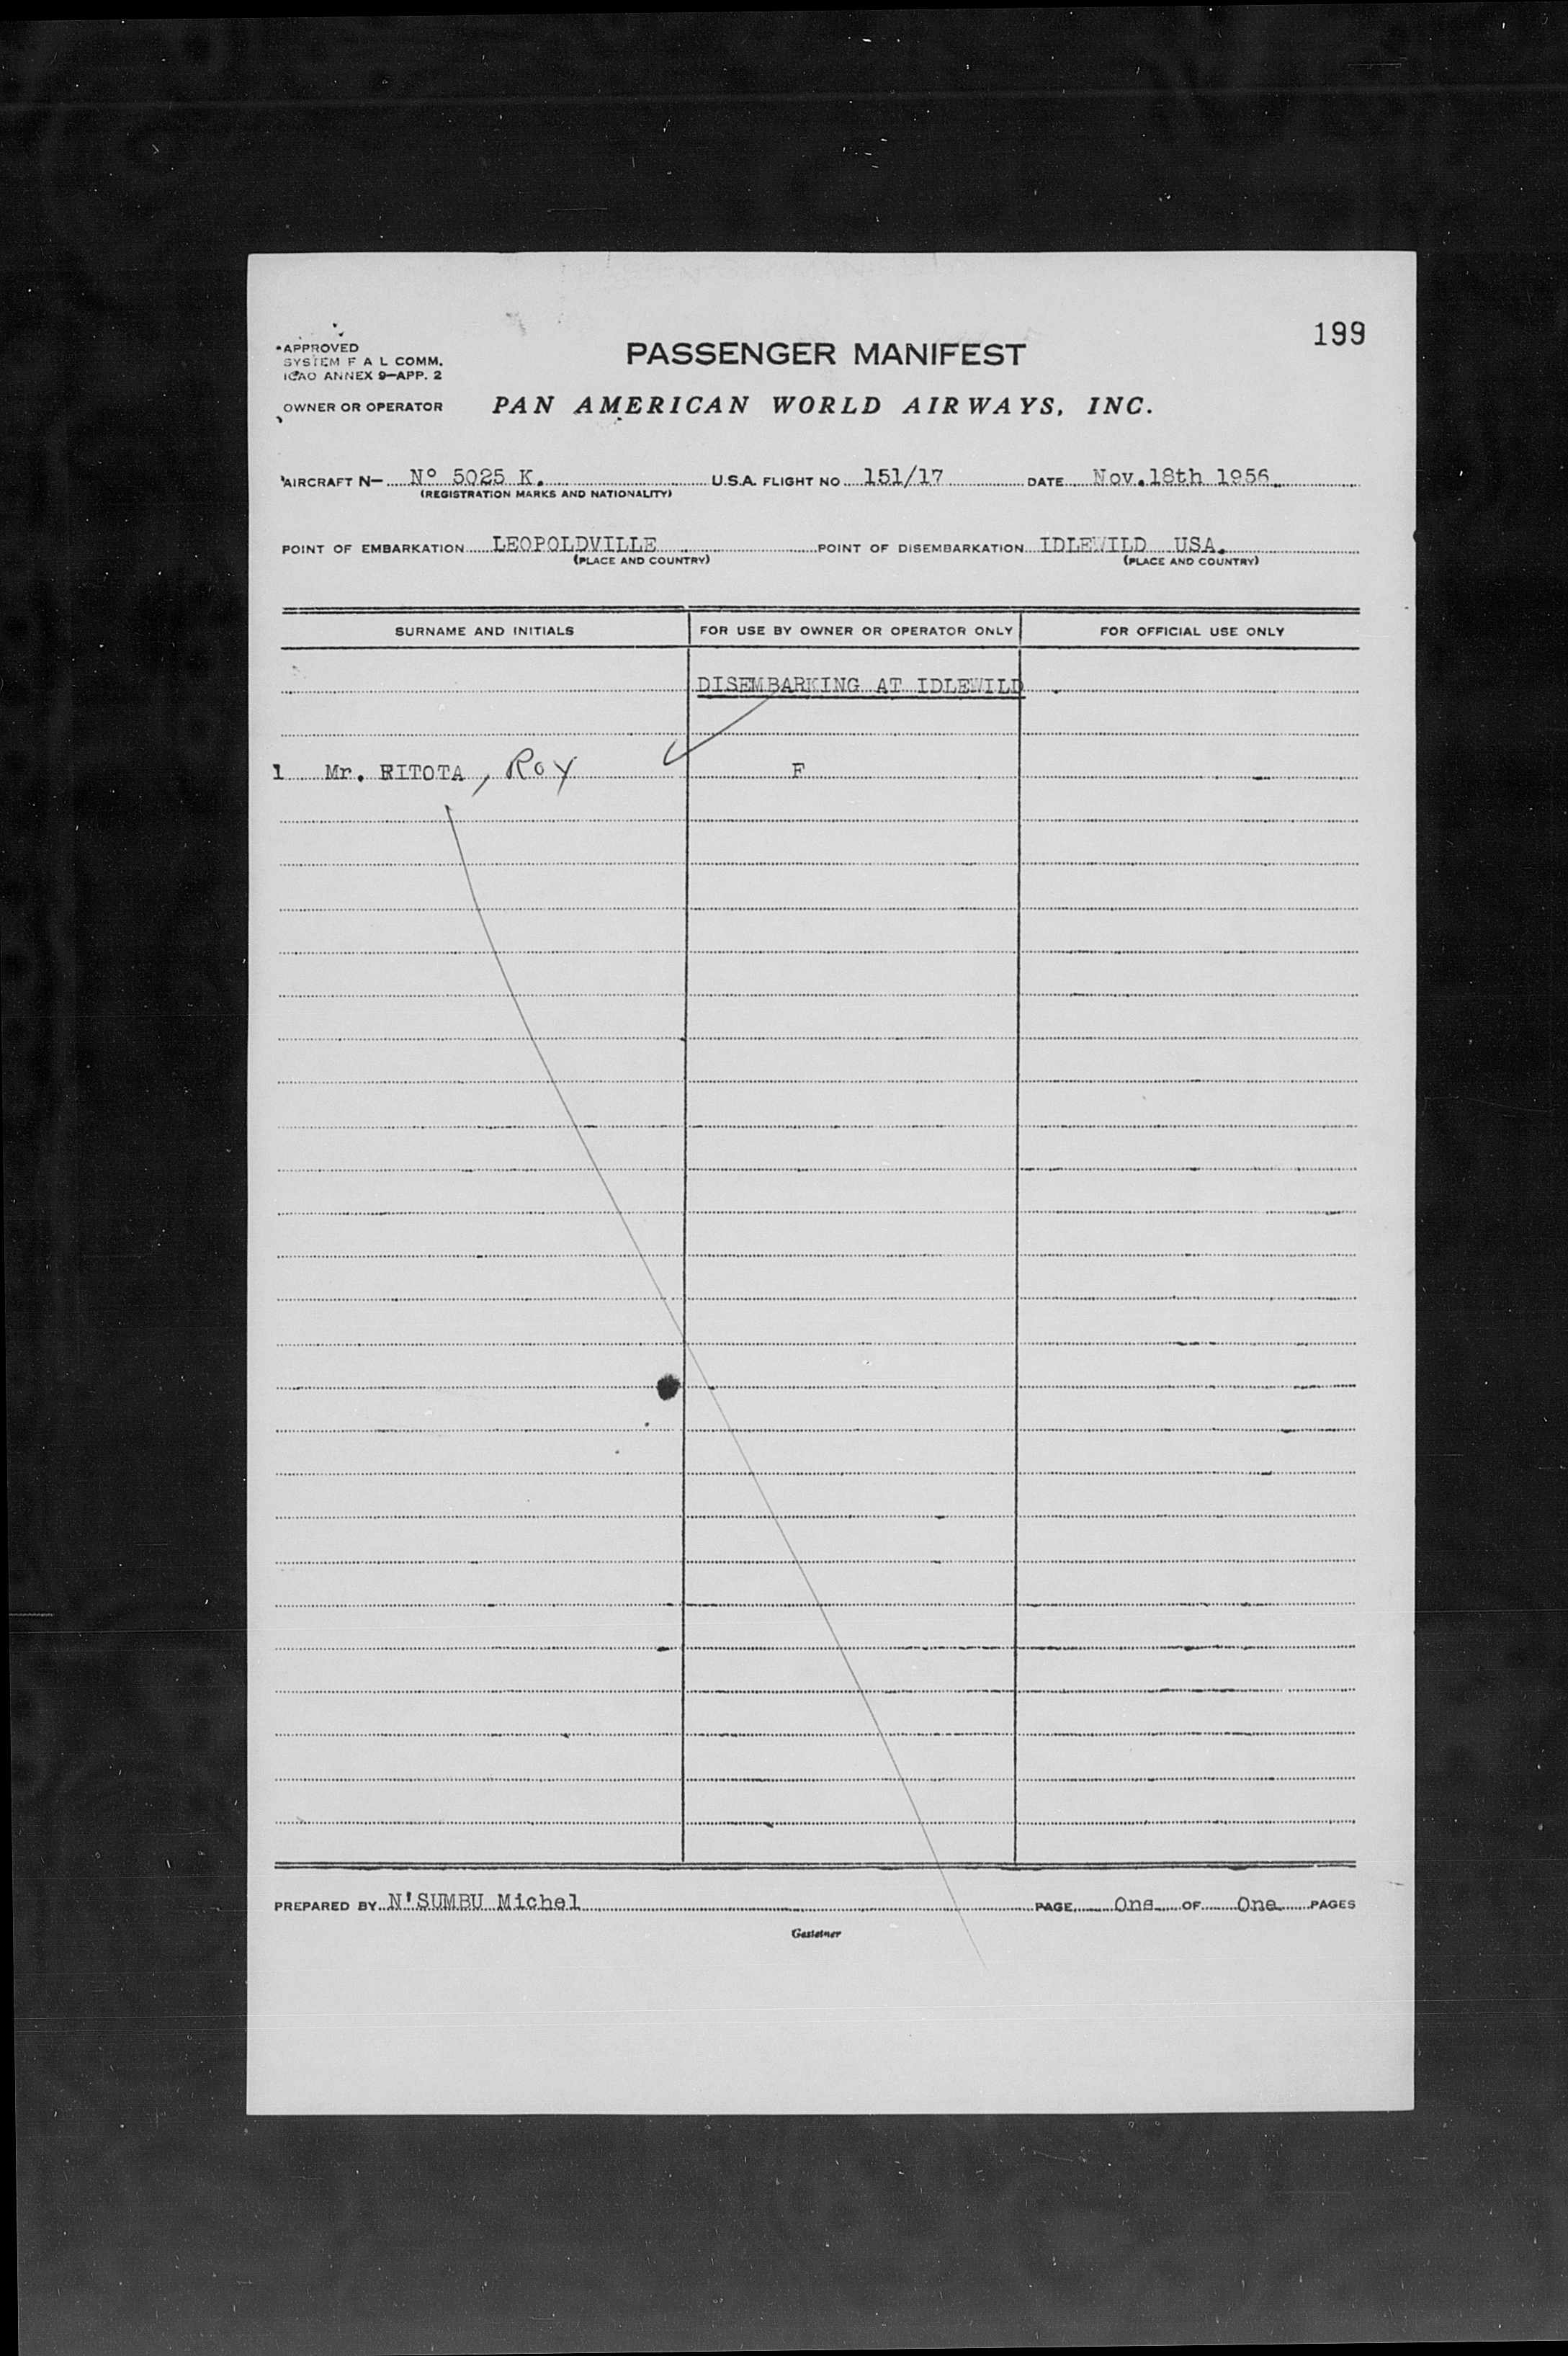 199
APPROVED
SYSTEM F A L COMM.
ICAO ANNEX 9—APP. 2
PASSENGER MANIFEST
OWNER OR OPERATOR PAN AMERICAN WORLD AIRWAYS, INC.
AIRCRAFT N— Nº 5025 K. U.S.A. FLIGHT NO 151/17 DATE Nov.18th 1956.
(REGISTRATION MARKS AND NATIONALITY)
POINT OF EMBARKATION LEOPOLDVILLE POINT OF DISEMBARKATION IDLEWILD USA.
(PLACE AND COUNTRY) (PLACE AND COUNTRY)
SURNAME AND INITIALS FOR USE BY OWNER OR OPERATOR ONLY FOR OFFICIAL USE ONLY
DISEMBARKING AT IDLEWILD
1 Mr. , Roy F
PREPARED BY N'SUMBU Michel PAGE One OF One PAGES
Gestetner